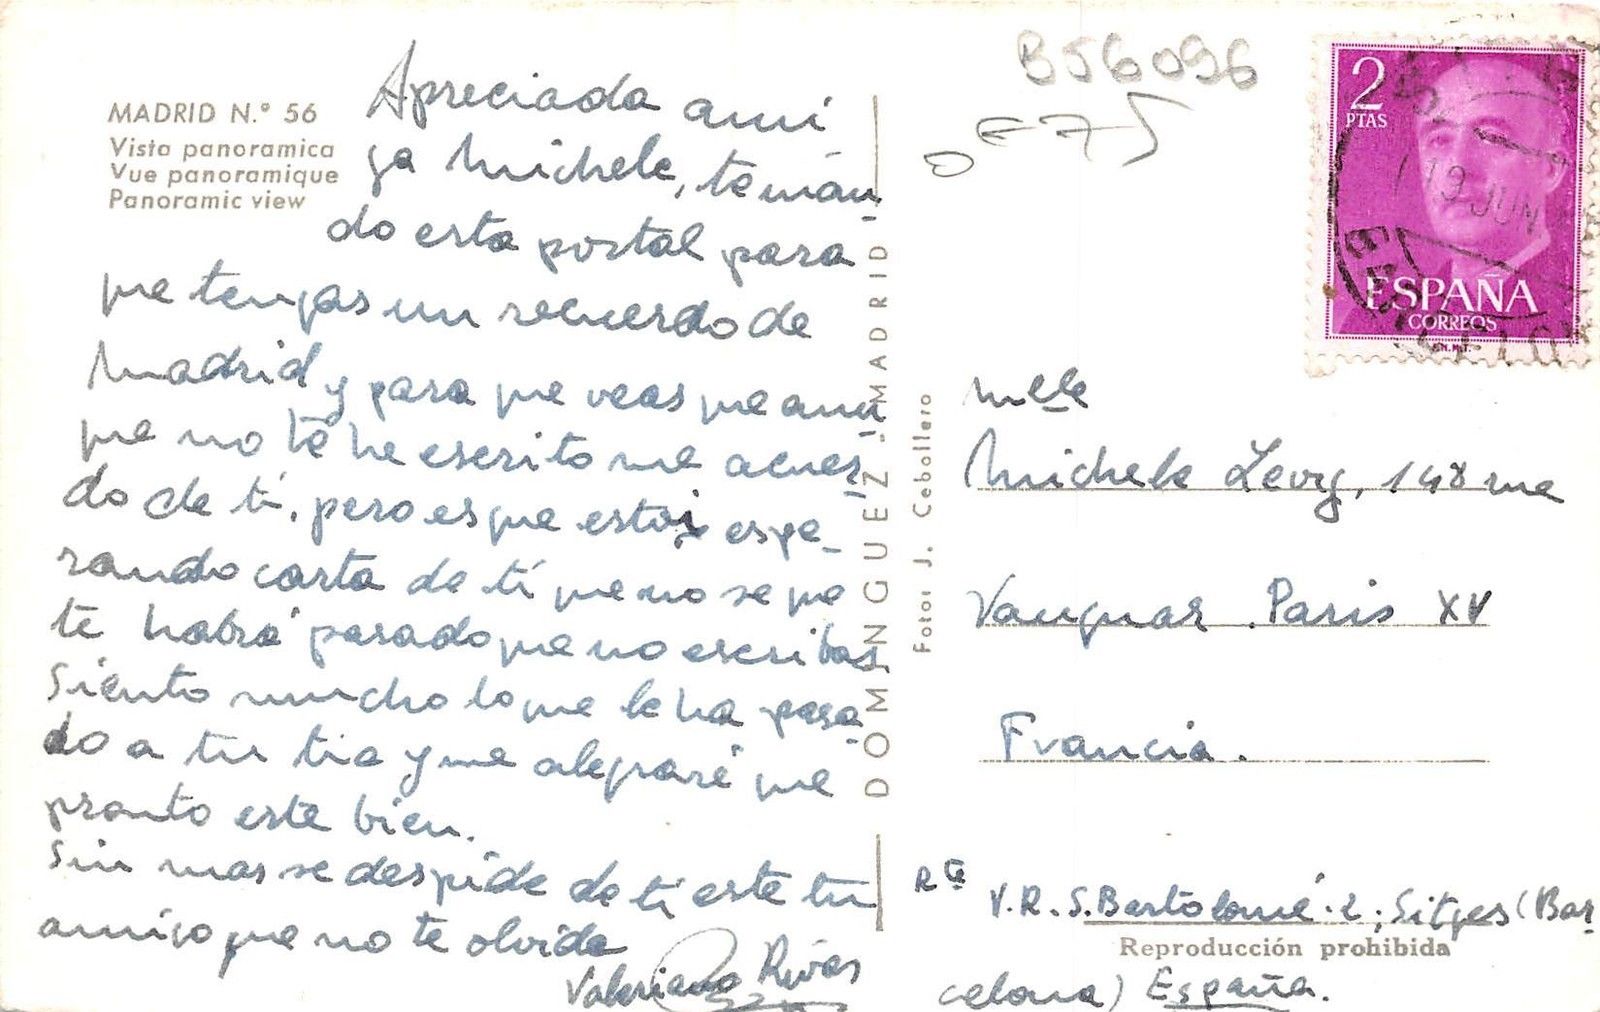 MADRID N.º 56
Vista panoramica
Vue panoramique
Panoramic view
Apreciada ami
ga Michele, te mán-
do esta postal para
que tengas un recuerdo de
Madrid y para que veas que aun-
que no te he escrito me acuer-
do de tí, pero es que estoi espe-
rando carta de tí que no se que
te habrá pasado que no escribas
Siento mucho lo que le ha pasa-
do a tu tia y me alegraré que
pronto este bien.
Sin mas se despide de tí este tu
amigo que no te olvida
Valeriano Rivas
DOMÍNGUEZ - MADRID
Fotos J. Ceballero
B56096
2
PTAS
19 JUN
ESPAÑA
CORREOS
Mlle
Michele Levy, 148 rue
Paris XV
Francia.
Rte V.R. S. Bartolomé. 2, Sitges (Bar-
celona) España.
Reproducción prohibida